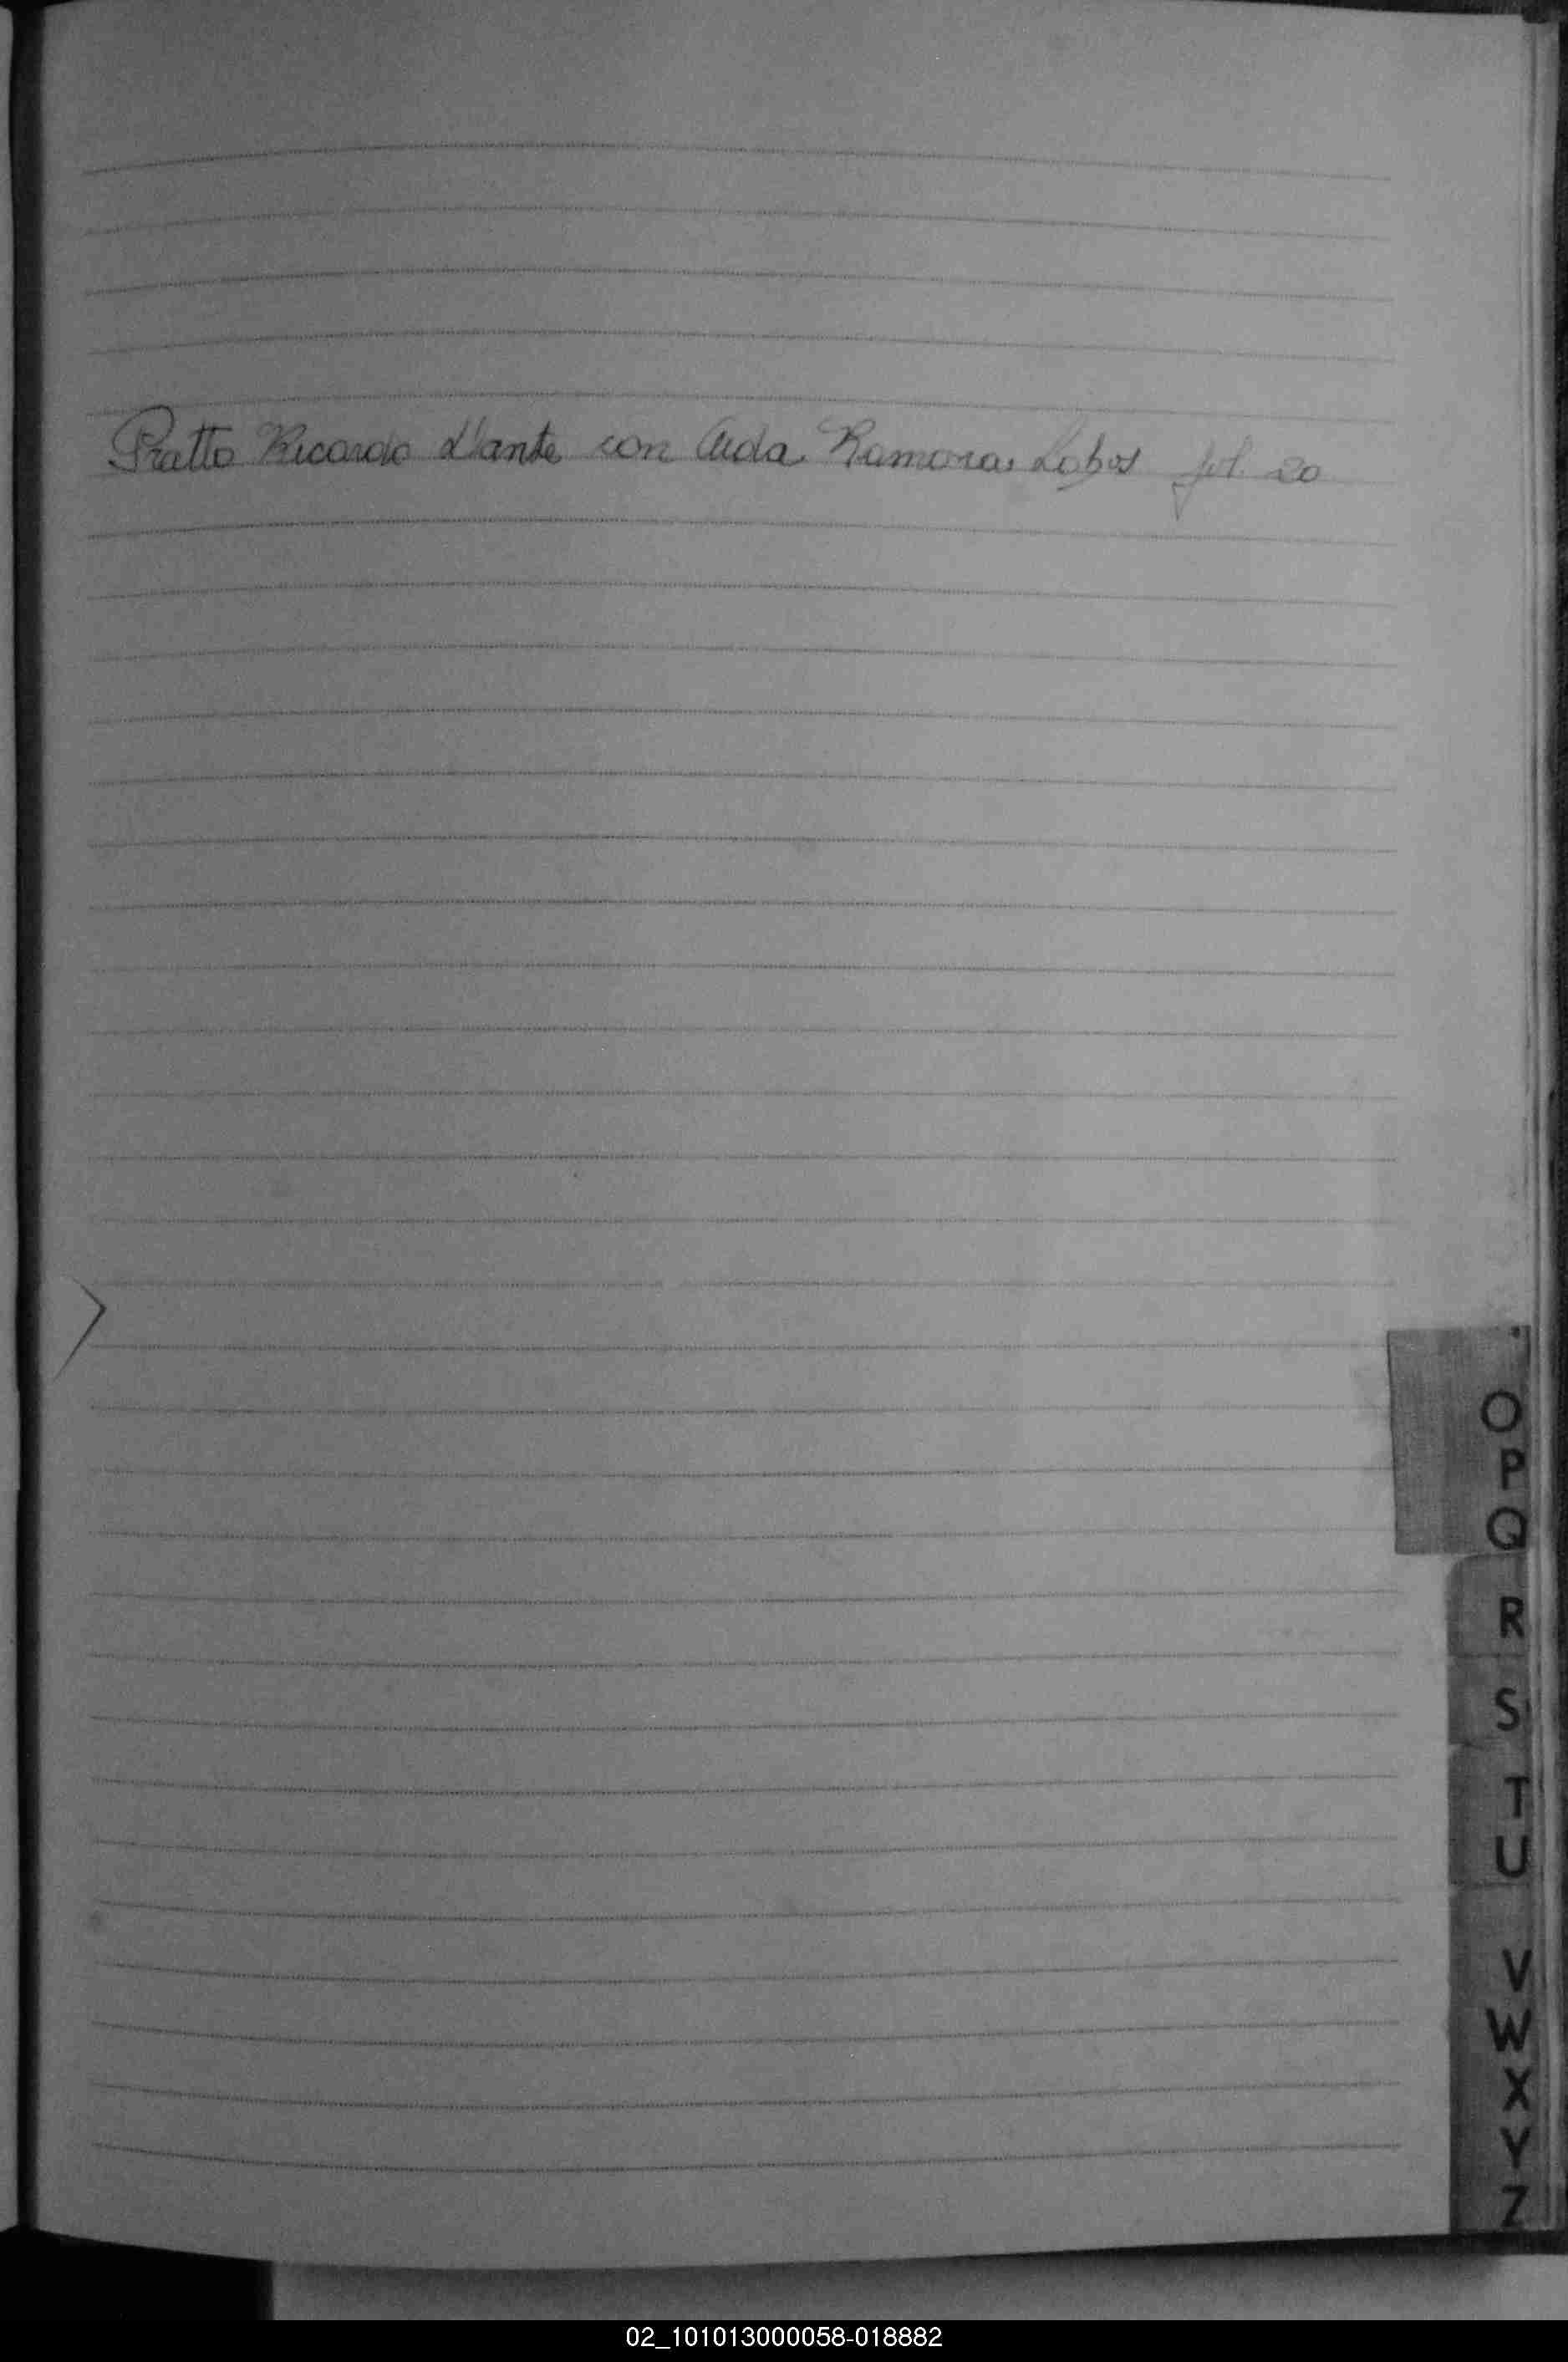 Pratto Ricardo Dante con Aida Ramona Lobos fol. 20
O
P
Q
R
S
T
U
V
W
X
Y
Z
02_101013000058-018882